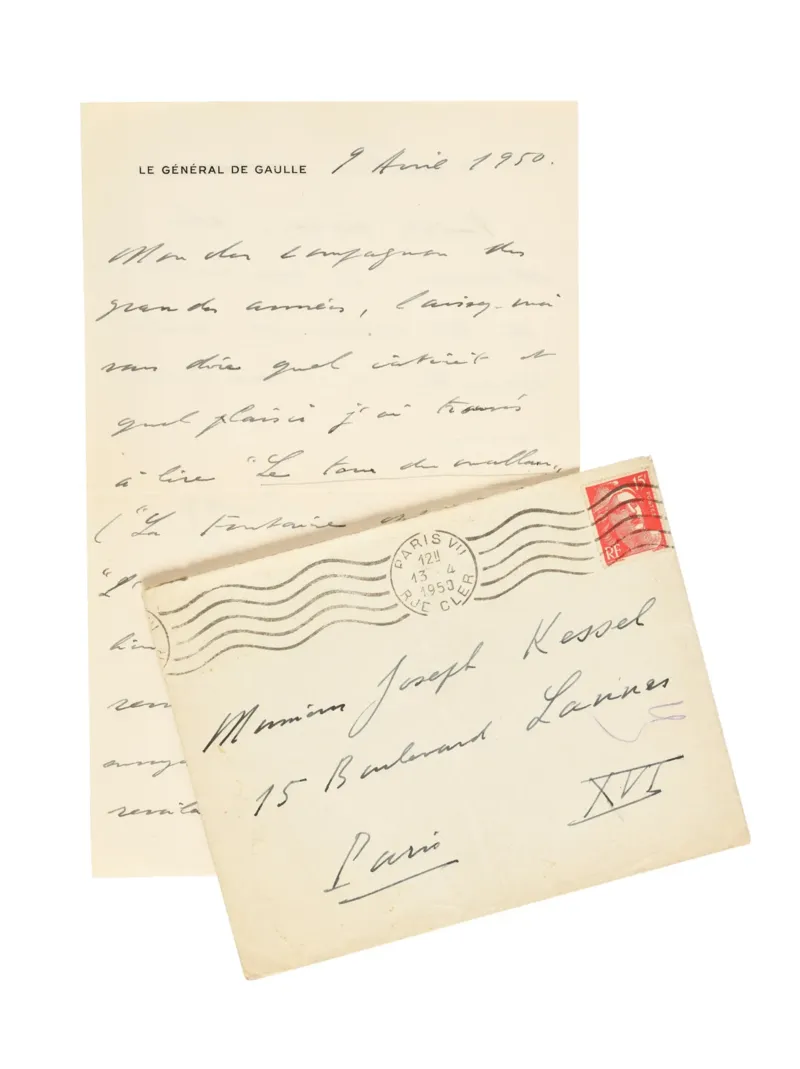 LE GÉNÉRAL DE GAULLE 9 Avril 1950.
Mon cher compagnon des
grandes années, laissez-moi
vous dire quel intérêt et
quel plaisir j'ai trouvés
à lire "Le tour du malheur"
("La Fontaine
PARIS VII
12H
13 4
1950
RUE CLER
15F
RF
Monsieur Joseph Kessel
15 Boulevard Lannes
XVI
Paris